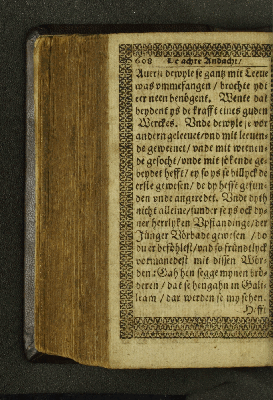 608 De achte Andacht/
Auerst dewyle se gantz mit Leeue
was vmmefangen / brochte ydt
eer neen benögent. Wente dat
beydent ys de krafft eines guden
Werckes. Vnde dewyle se vor
andern geleeuet/vnd mit leeuen-
de geweinet / vnde mit weenen-
de gesocht/vnde mit sökende ge-
beydet hefft/ey so ys se billyck de
erste gewesen/ de dy hefft gesun-
den vnde angeredet. Vnde dyth
nicht alleine/sunder se ys ock dy-
ner herrlyken Vpstandinge/der
Jünger Vörbade gewesen / do
du er beföhlest/vnd so fründtlyck
vormanedest mit dissen Wör-
den: Gah hen segge mynen brö-
deren / dat se hengahn in Gali-
leam / dar werden se my sehen.
Hefft